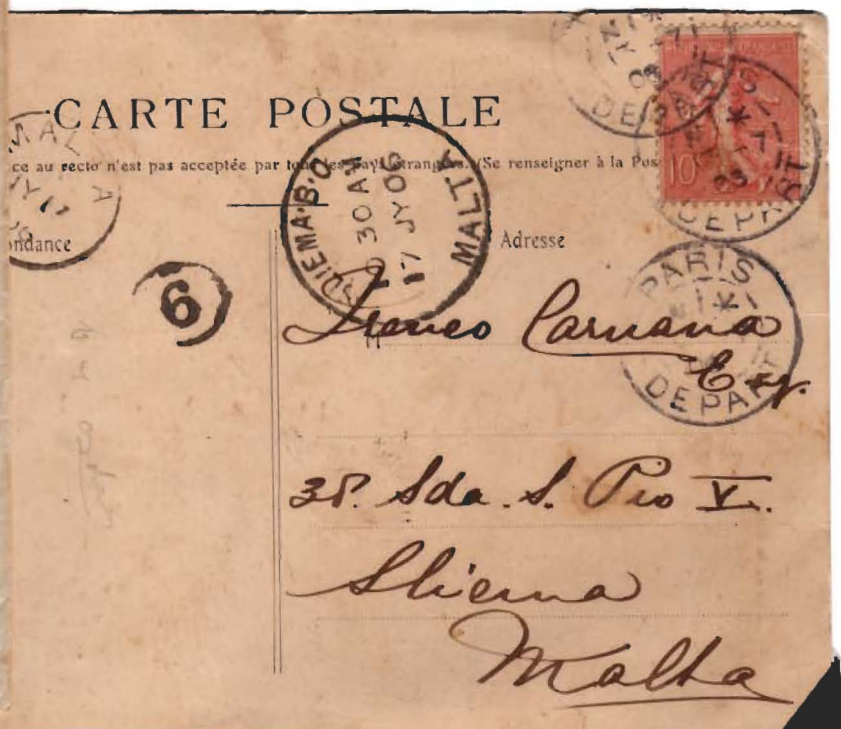 CARTE POSTALE
ce au recto n'est pas acceptée par tous les pays étrangers. (Se renseigner à la Pos
ondance
Adresse
MALTA
SLIEMA.B.O.
10 30 AM
17 JY 06
MALTA
6
10
DEPART
DEPART
PARIS
DEPART
Caruana
Esq.
38. Sda. S. Pio V.
Sliema
Malta